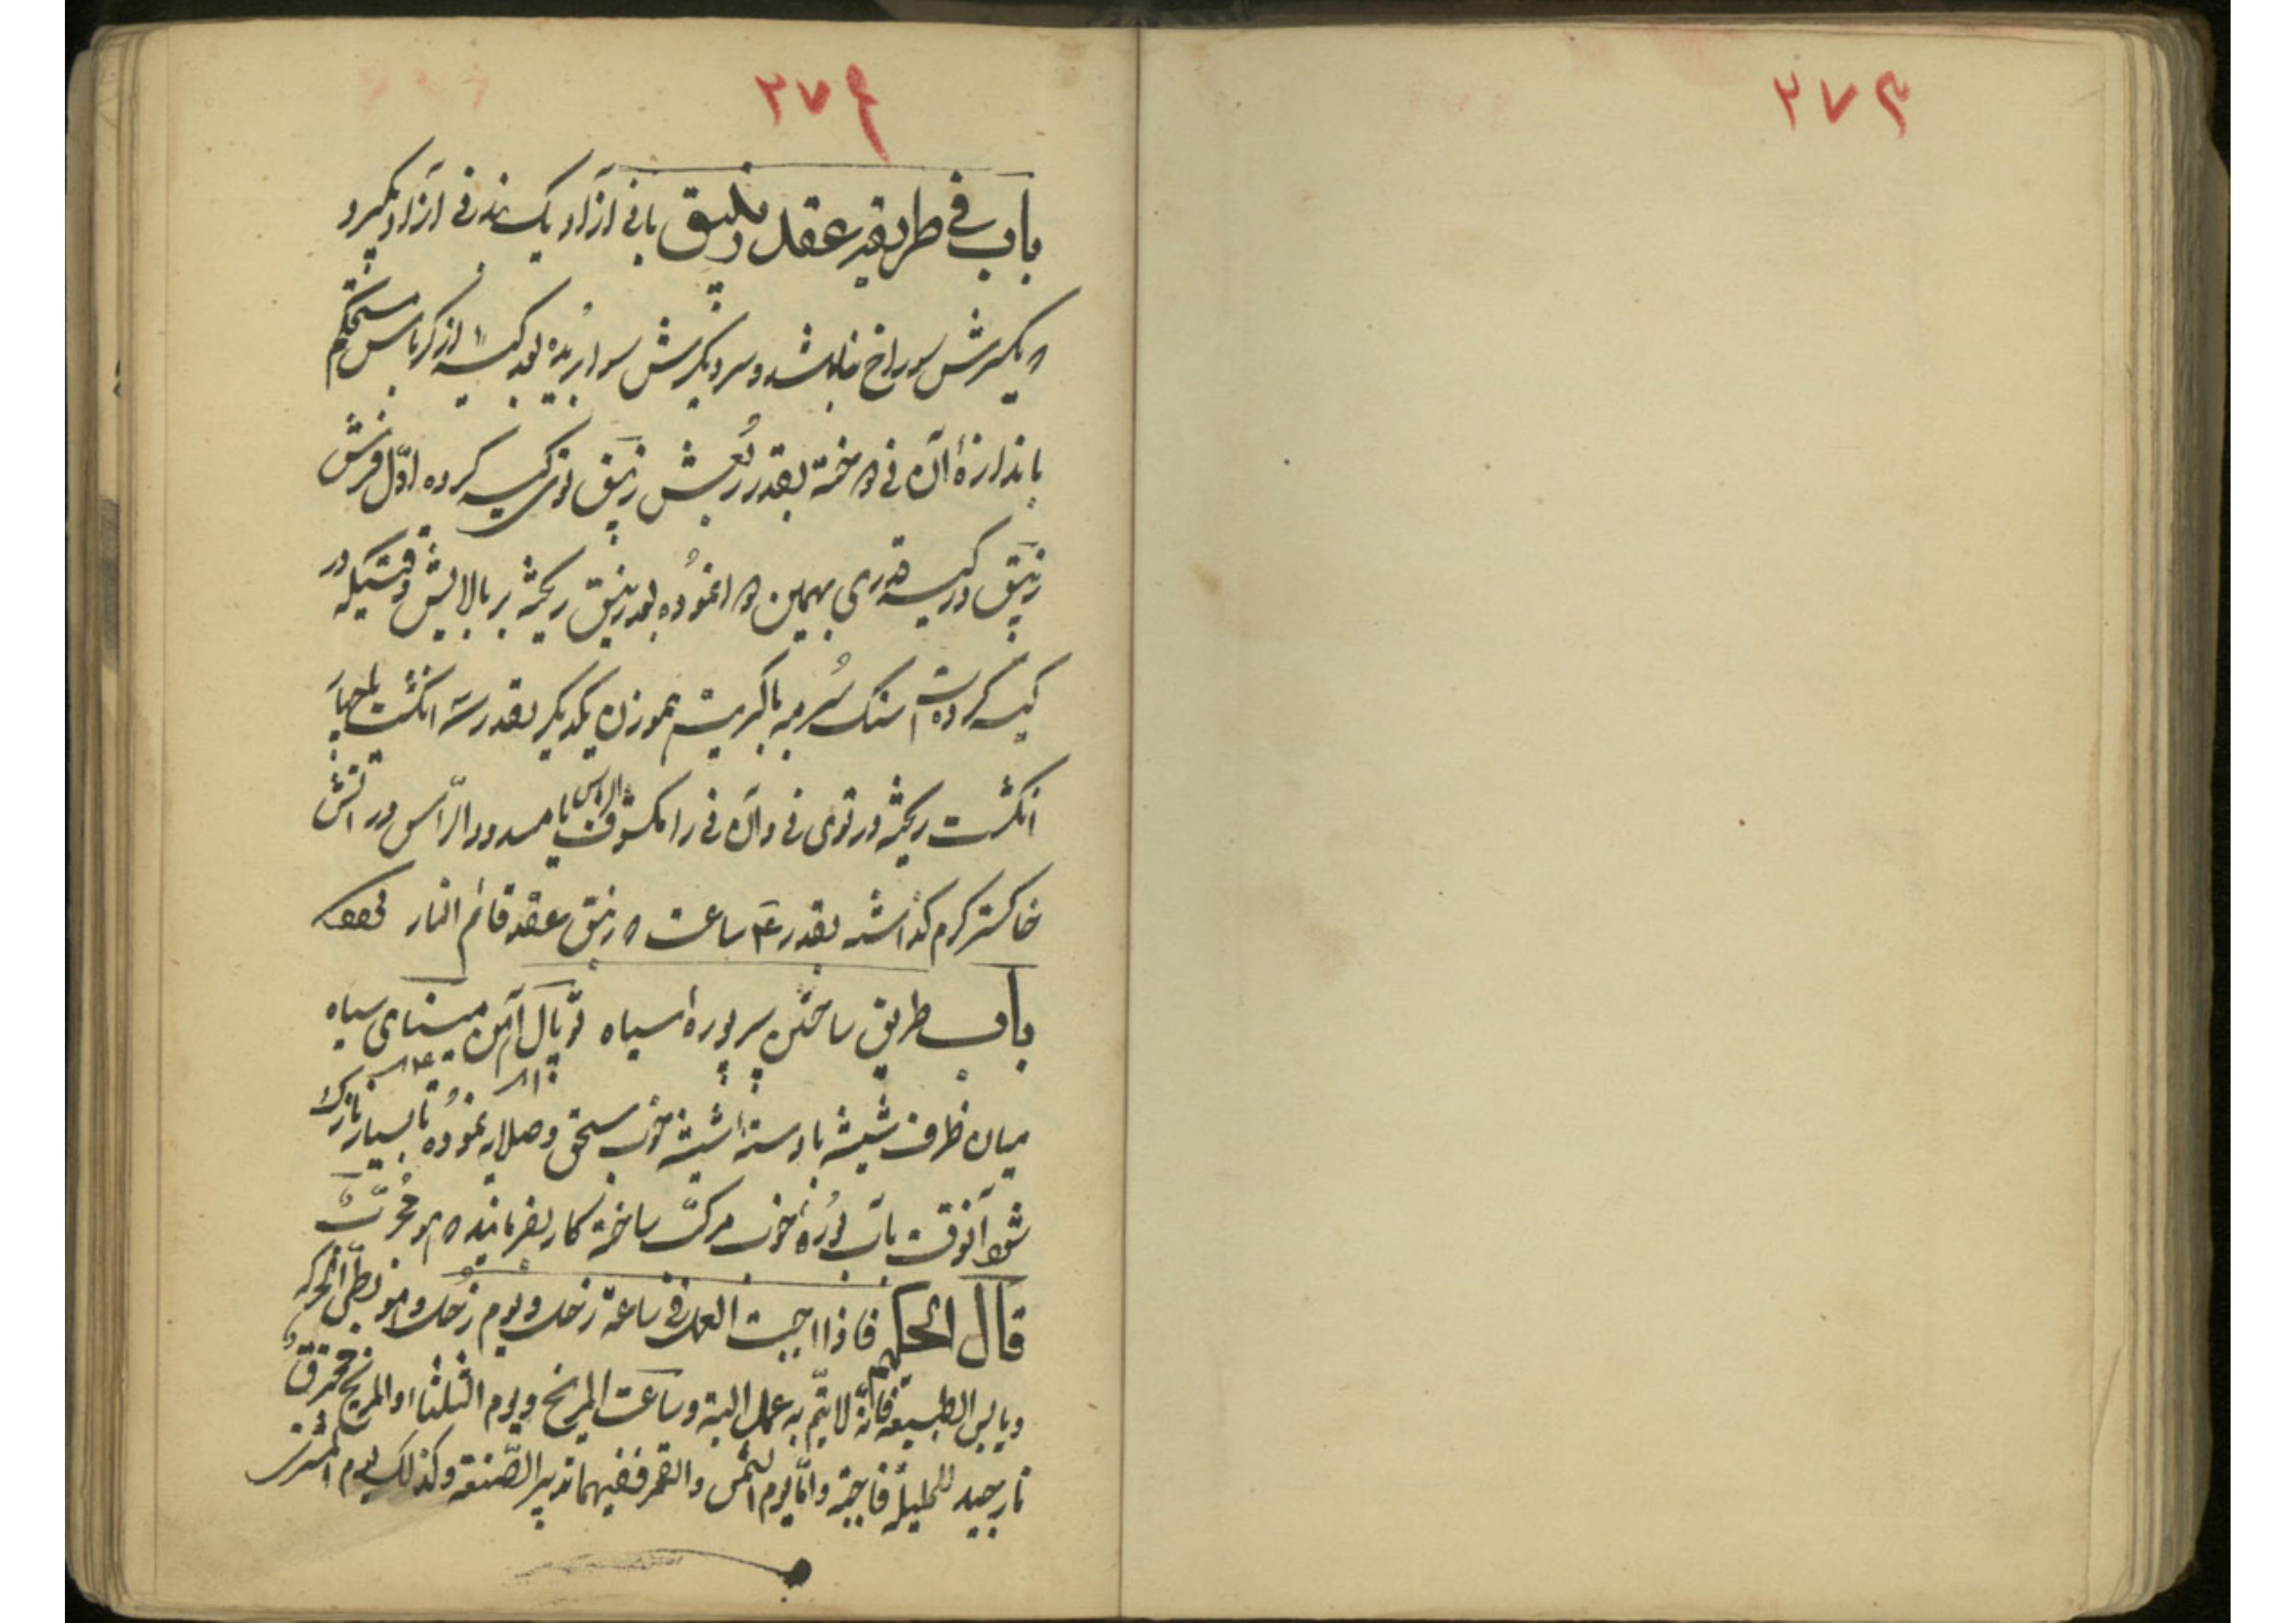 ۲۷۴
۲۷۳
باب فی طریقه عقد زیبق با نی آزاد یک بند نی آزاد بگیرد
یکسرش سوراخ باشد و سر دیگرش سوا بریده بعد کیسه از کرباس مستحکم
باندازهٔ آن نی بقدر ربعش زیبق توی کیسه کرده اول فرش
زیبق در کیسه قدری بهمین نموده بعد زیبق ریخته بر بالایش وقتیکه در
کیسه کرده سنک سُرمه با کبریت هموزن یکدیگر بقدر سه انکشت یا چهار
انکشت ریخته در توی نی و آن نی را مکشوف الراس یا مسدود الرّأس در آتش
خاکستر کرم کذاشته بقدر ۲۴ ساعت زیبق عقد قائم النار
باب طریق ساختن بوره سیاه توپال آهن مینای سیاه
میان ظرف شیشه با دسته شیشه خوب سحق و صلایه نموده تا بسیار نازک
شود آنوقت با آب بوره خوب مرکب ساخته کار بفرمایند مجرّب
قال الحکیم فاذا احببت العمل فی ساعة زحل و یوم زحل و هو بطئ الحرکه
و یابس الطبیعة فانّه لا یتمّ به عمل البتة و ساعت المریخ و یوم الثلثاء و المریخ محترق
نار جید للحلیلة و امّا یوم الشمس و القمر ففیهما تدبیر الصّنعة و کذلک یوم المشتری